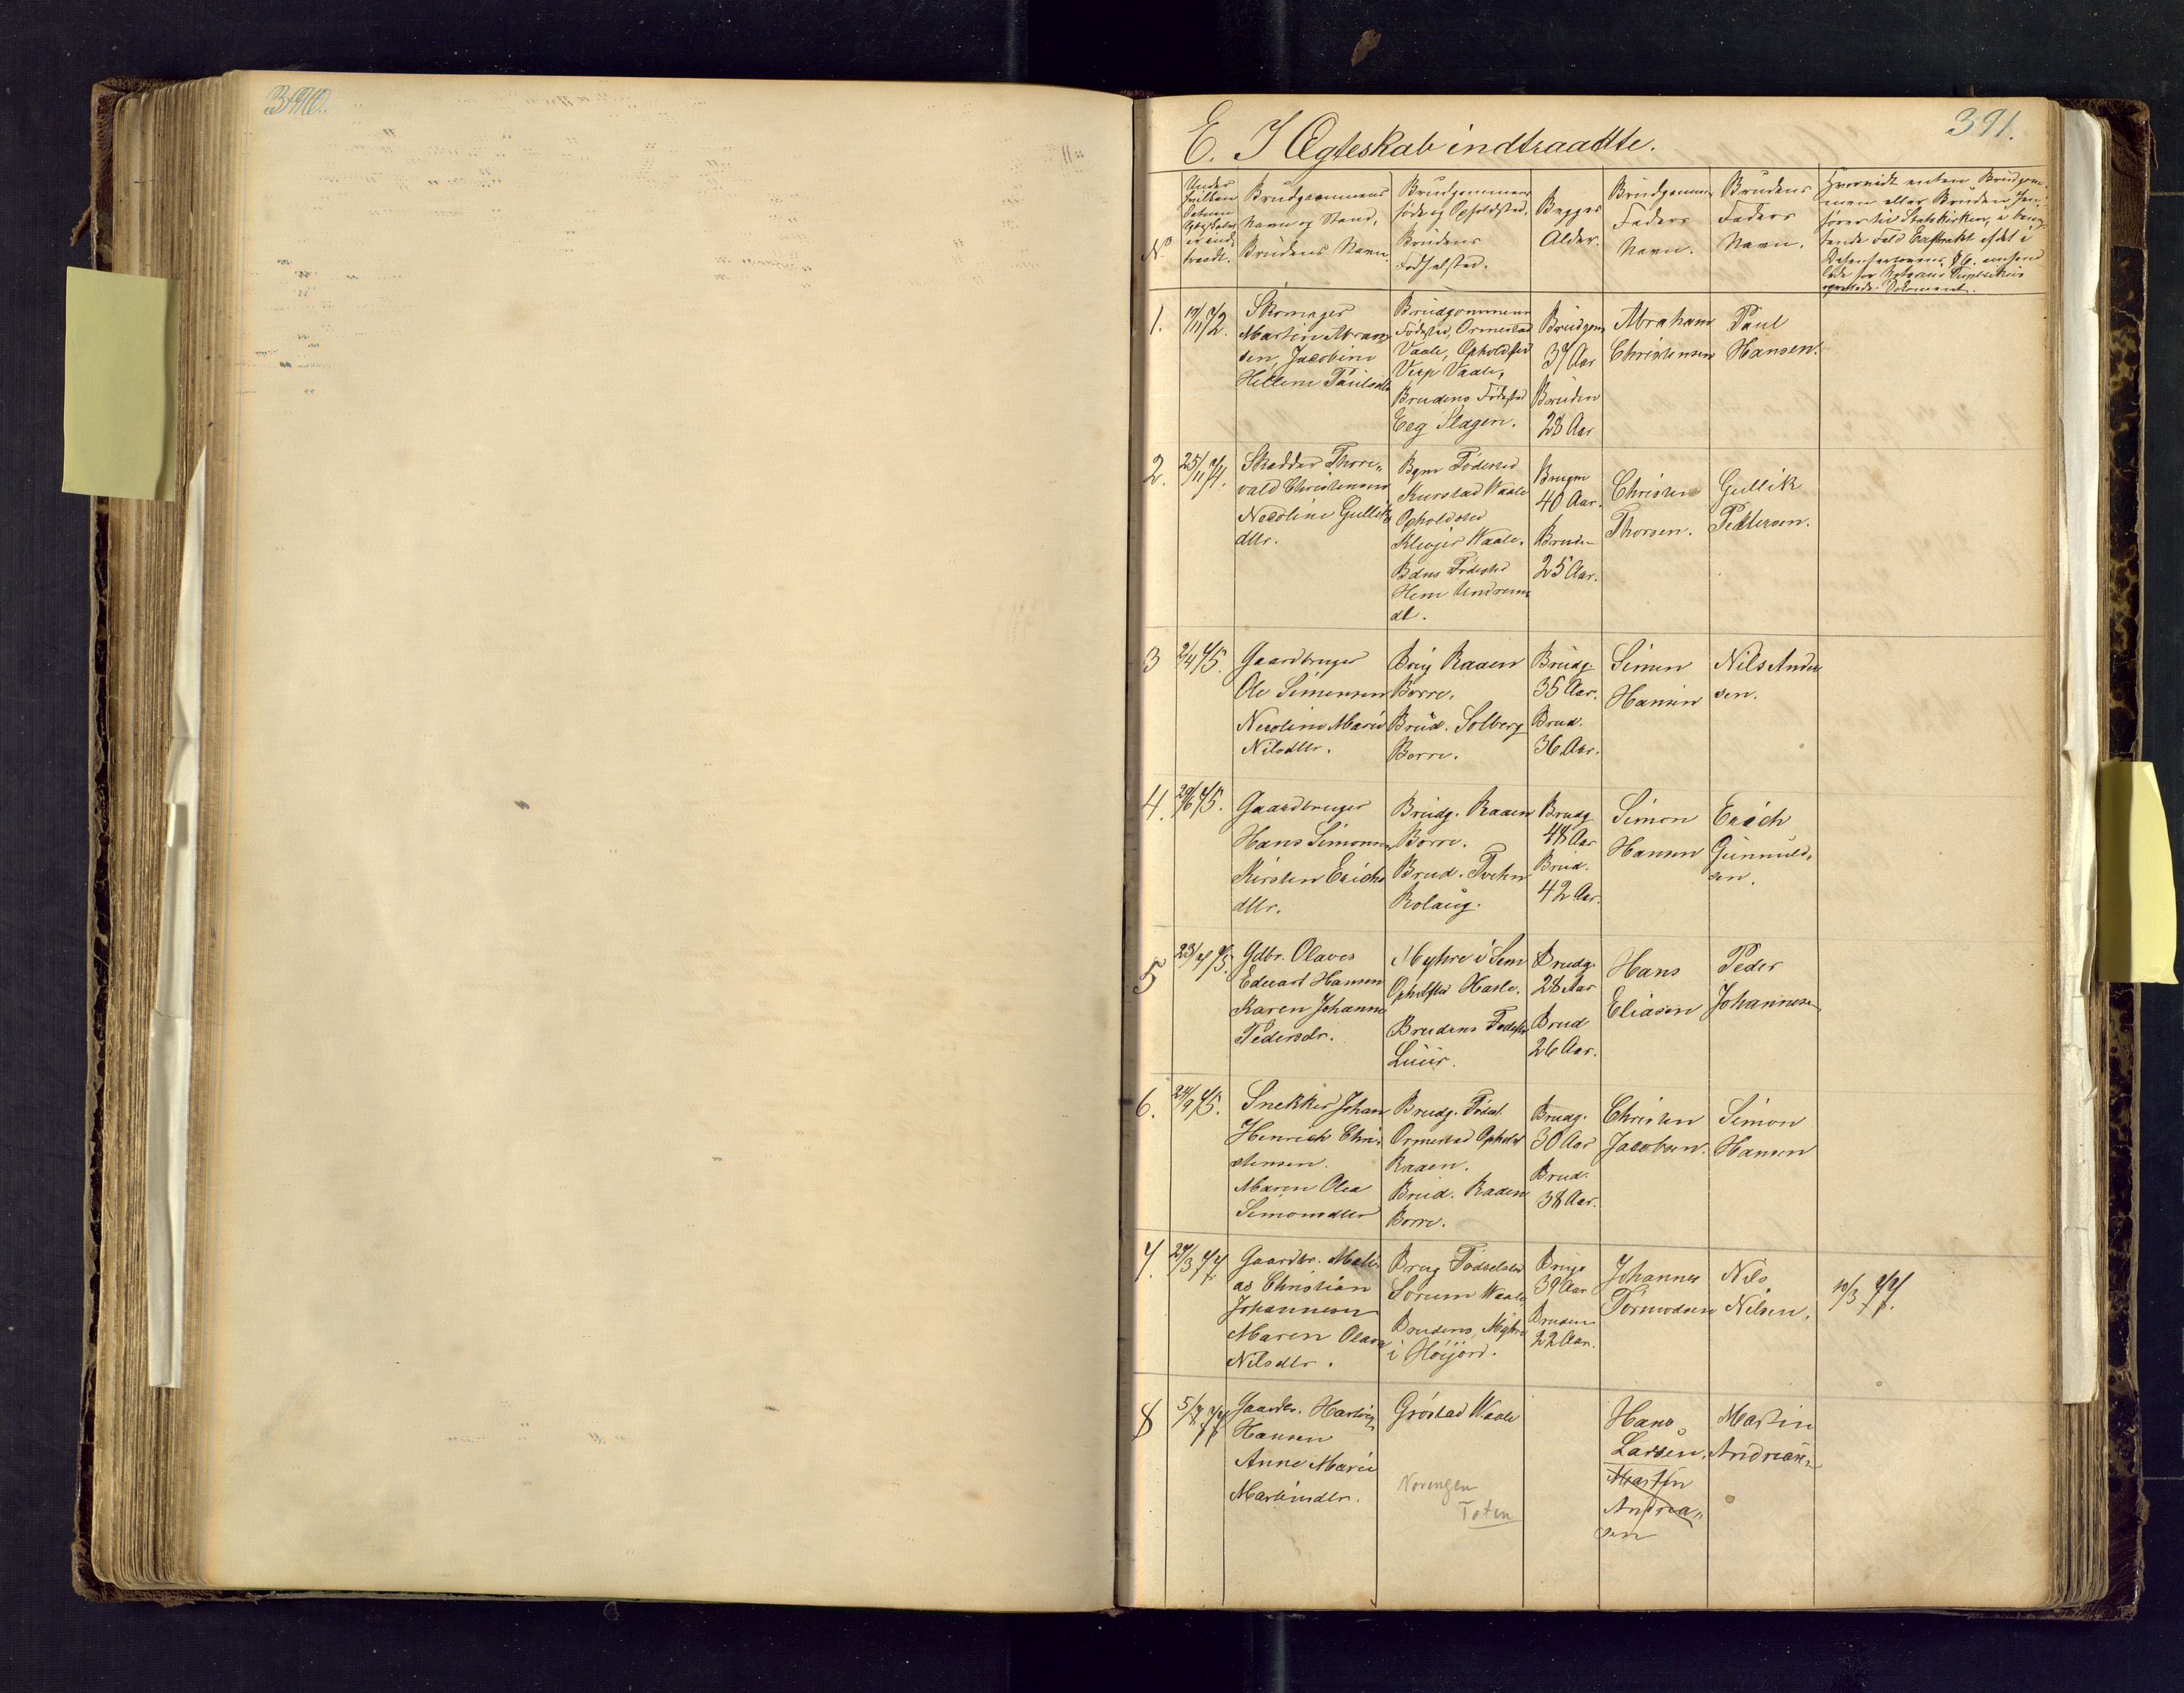 390.
391.
E. I Ægteskab indtraadte.
No
Under
hvilken
Datum
Ægteskabet
er ind-
traadt.
Brudgommens
Navn og Stand,
Brudens Navn.
Brudgommens
føde og Opholdsted.
Brudens
Fødselsted.
Begges
Alder.
Brudgommens
Faders
Navn.
Brudens
Faders
Navn.
Hvorvidt enten Brudgom-
men eller Bruden hen-
hører til Statskirken, i
Fald Extrakt af det i
1.
Skomager
Martin Abram
sen, Jacobine
Hellene Paulsdtr
Brudgommens
Fødested, Ormestad
Vaale, Opholdsted
Vaale,
Brudens Fødested
Eeg Slagen.
Brudgom
37 Aar
Bruden
28 Aar
Abraham
Christensen
Paul
Hansen.
2.
25/11 74.
Skrædder Thore-
vald Christensen
Nicoline Gulliks
dtr.
Bgm Fødested
Kurstad Waale
Opholdsted
Klevjer Waale.
Bdns Fødested
Hem Undrum
dl.
Brugm
40 Aar.
Bruden
25 Aar.
Christen
Thorsen.
Gullik
Pettersen.
3
2/4 75.
Gaardbruger
Ole Simensen
Nicoline Marie
Nilsdtr.
Brug Raaen
Borre.
Brud. Solberg
Borre.
Brudg.
35 Aar.
Brud.
36 Aar.
Simen
Hansen
Nils Ander
sen.
4.
29/6 75.
Gaardbruger
Hans Simonsen
Kirsten Erichs
dtr.
Brudg. Raaen
Borre.
Brud. Tvethen
Rolaug.
Brudg
48 Aar
Brud.
42 Aar.
Simon
Hansen
Erich
Gunnuld-
sen.
5
23/7 75.
Gdbr. Olaves
Eduart Hansen
Karen Johanne
Pedersdr.
Myhre i Sem
Opholdsted Hasle.
Brudens Fødested
Luur.
Brudg.
28 Aar
Brud
26 Aar.
Hans
Eliasen
Peder
Johannesen
6.
24/9 75.
Snekker Johan
Henrich Chri-
stensen.
Maren Olea
Simonsdtr
Brudg. Fødest.
Ormestad Opholdst
Raaen.
Brud. Raaen
Borre.
Brudg.
30 Aar
Brud.
38 Aar.
Christen
Jacobsen.
Simon
Hansen
7.
27/3 77.
Gaardbr. Mathi
as Christian
Johannesen
Maren Olava
Nilsdtr.
Brug Fødselsted
Sørum Waale,
Brudens, Myhre
i Høijord.
Bruge
39 Aar
Bruden
22 Aar.
Johannes
Tormodsen
Nils
Nilsen.
10/3 77.
8
5/7 77
Gaardbr. Hartvig
Hansen
Anne Marie
Martinsdtr.
Grøstad Waale
Norengen
Toten
Hans
Larsen.
Martin
Andrea-
sen
Martin
Andreasen